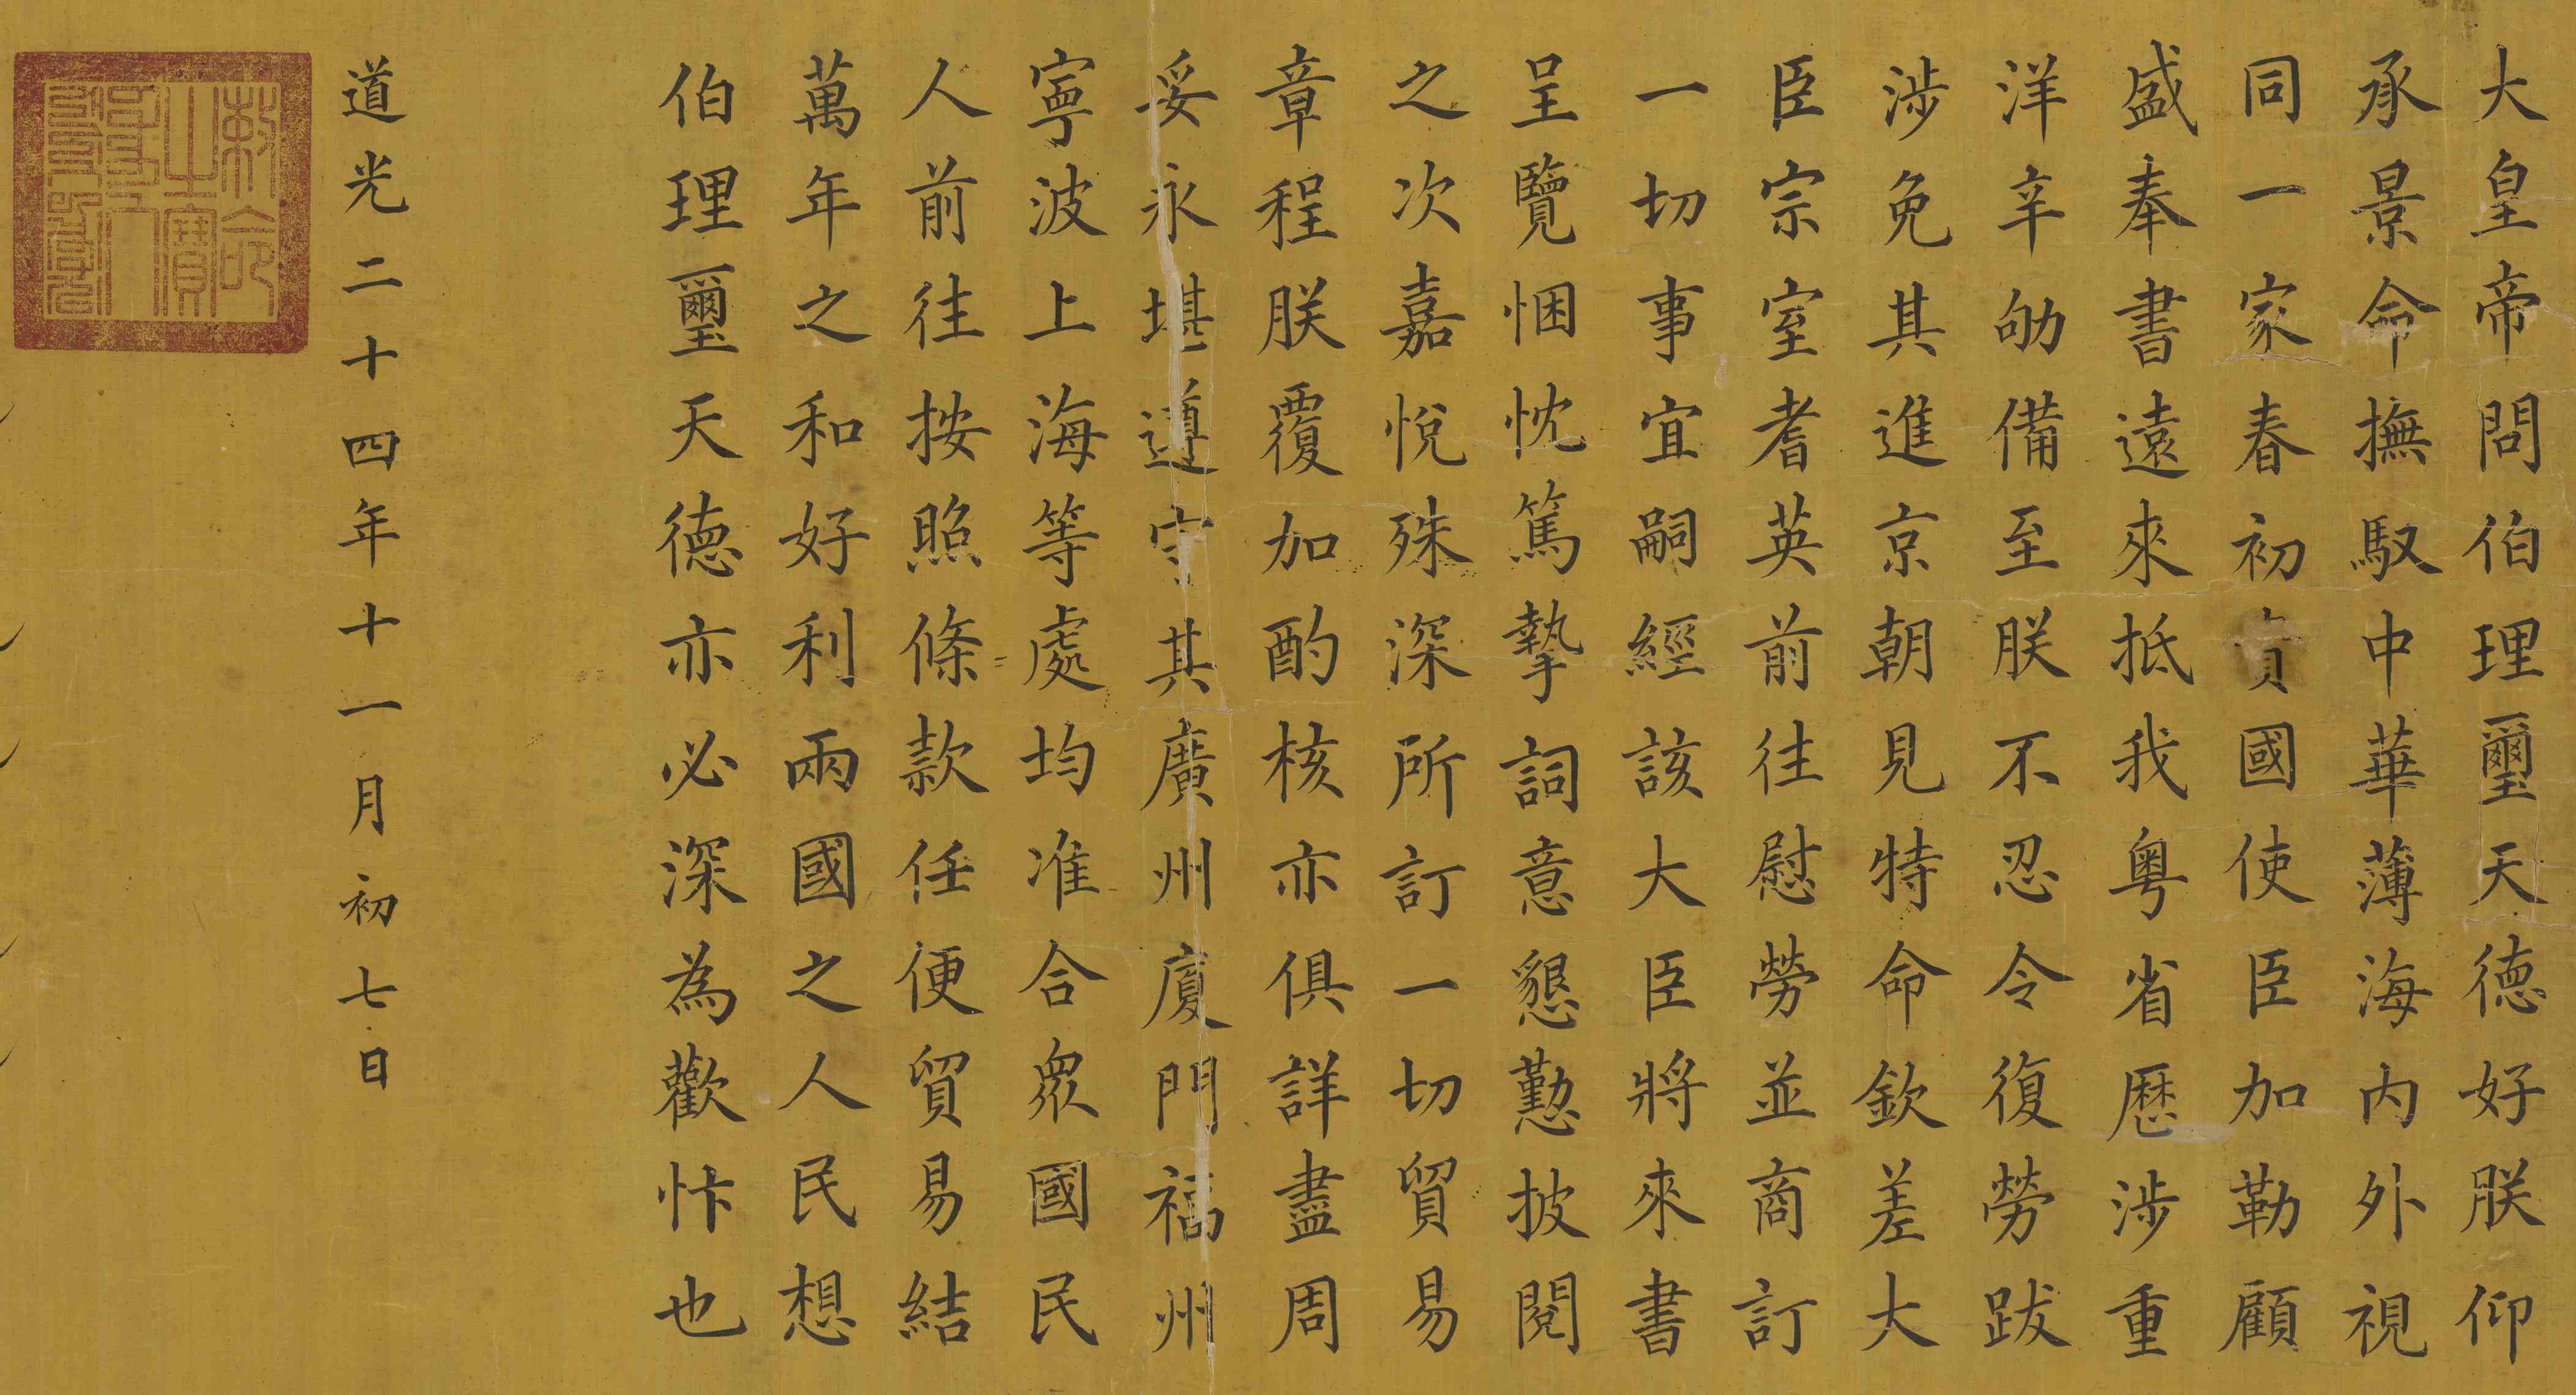 大皇帝問伯理璽天德好朕仰
承景命撫馭中華薄海內外視
同一家春初貴國使臣加勒顧
盛奉書遠來抵我粵省歷涉重
洋辛劬備至朕不忍令復勞跋
涉免其進京朝見特命欽差大
臣宗室耆英前往慰勞並商訂
一切事宜嗣經該大臣將來書
呈覽悃忱篤摯詞意懇懃披閱
之次嘉悅殊深所訂一切貿易
章程朕覆加酌核亦俱詳盡周
妥永堪遵守其廣州廈門福州
寧波上海等處均准合眾國民
人前往按照條款任便貿易結
萬年之和好利兩國之人民想
伯理璽天德亦必深為歡忭也
道光二十四年十一月初七日
敕命之寶